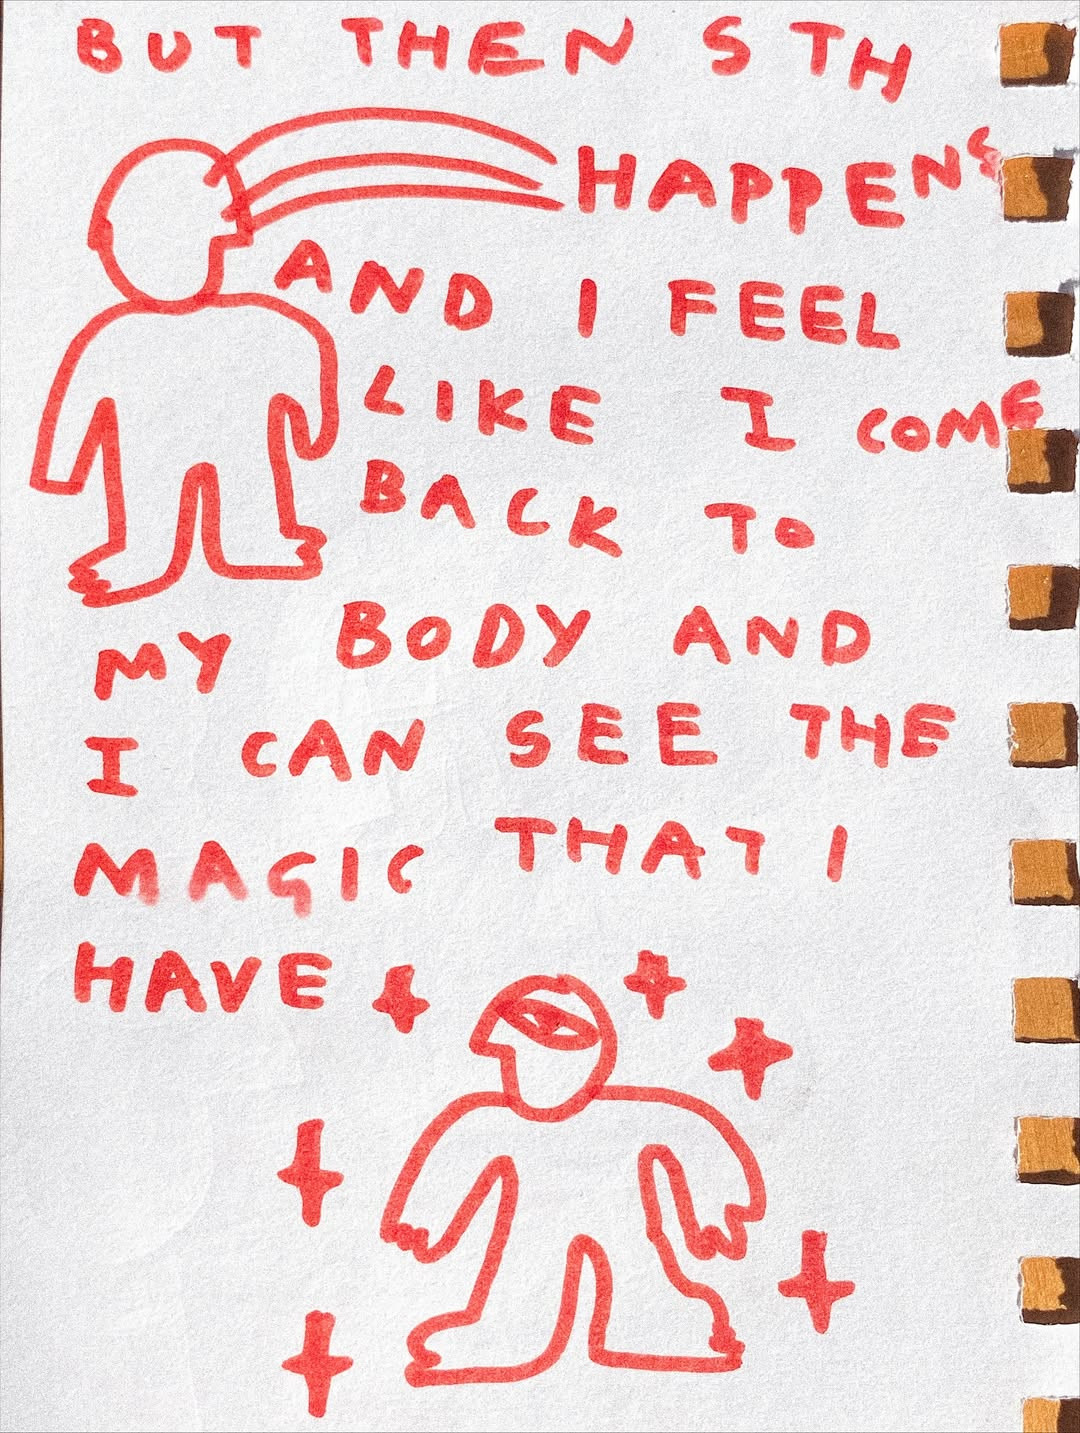 BUT THEN STH
HAPPENS
AND I FEEL
LIKE I COME
BACK TO
MY BODY AND
I CAN SEE THE
MAGIC THAT I
HAVE